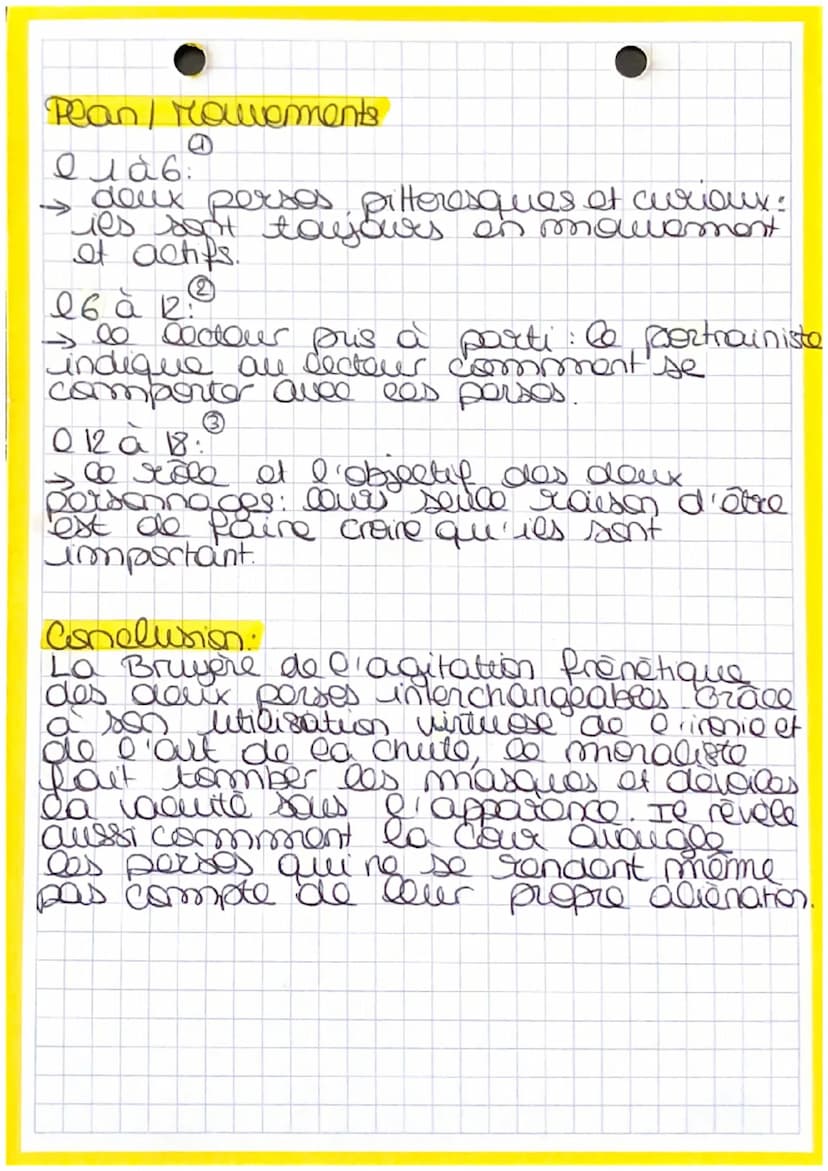 Plan / Mouvements
①
l 1 à 6:
→ deux perses pitteresques et curieux:
ils sont toujours en mouvement
et actifs.
②
l 6 à 12:
→ le lecteur pris à parti : le portrainiste
indique au lecteur comment se
comporter avec les perses.
③
l 12 à 18:
→ le rôle et l'objectif des deux
personnages: leurs seule raison d'être
est de faire croire qu'ils sont
important.
Conclusion:
La Bruyère de l'agitation frénétique
des deux perses interchangeables. Grâce
à son utilisation virtuose de l'ironie et
de l'art de la chute, le moraliste
fait tomber les masques et dévoiles
la vacuité sous l'apparence. Il révèle
aussi comment la Cour aveugle
les perses qui ne se rendent même
pas compte de leur propre aliénation.